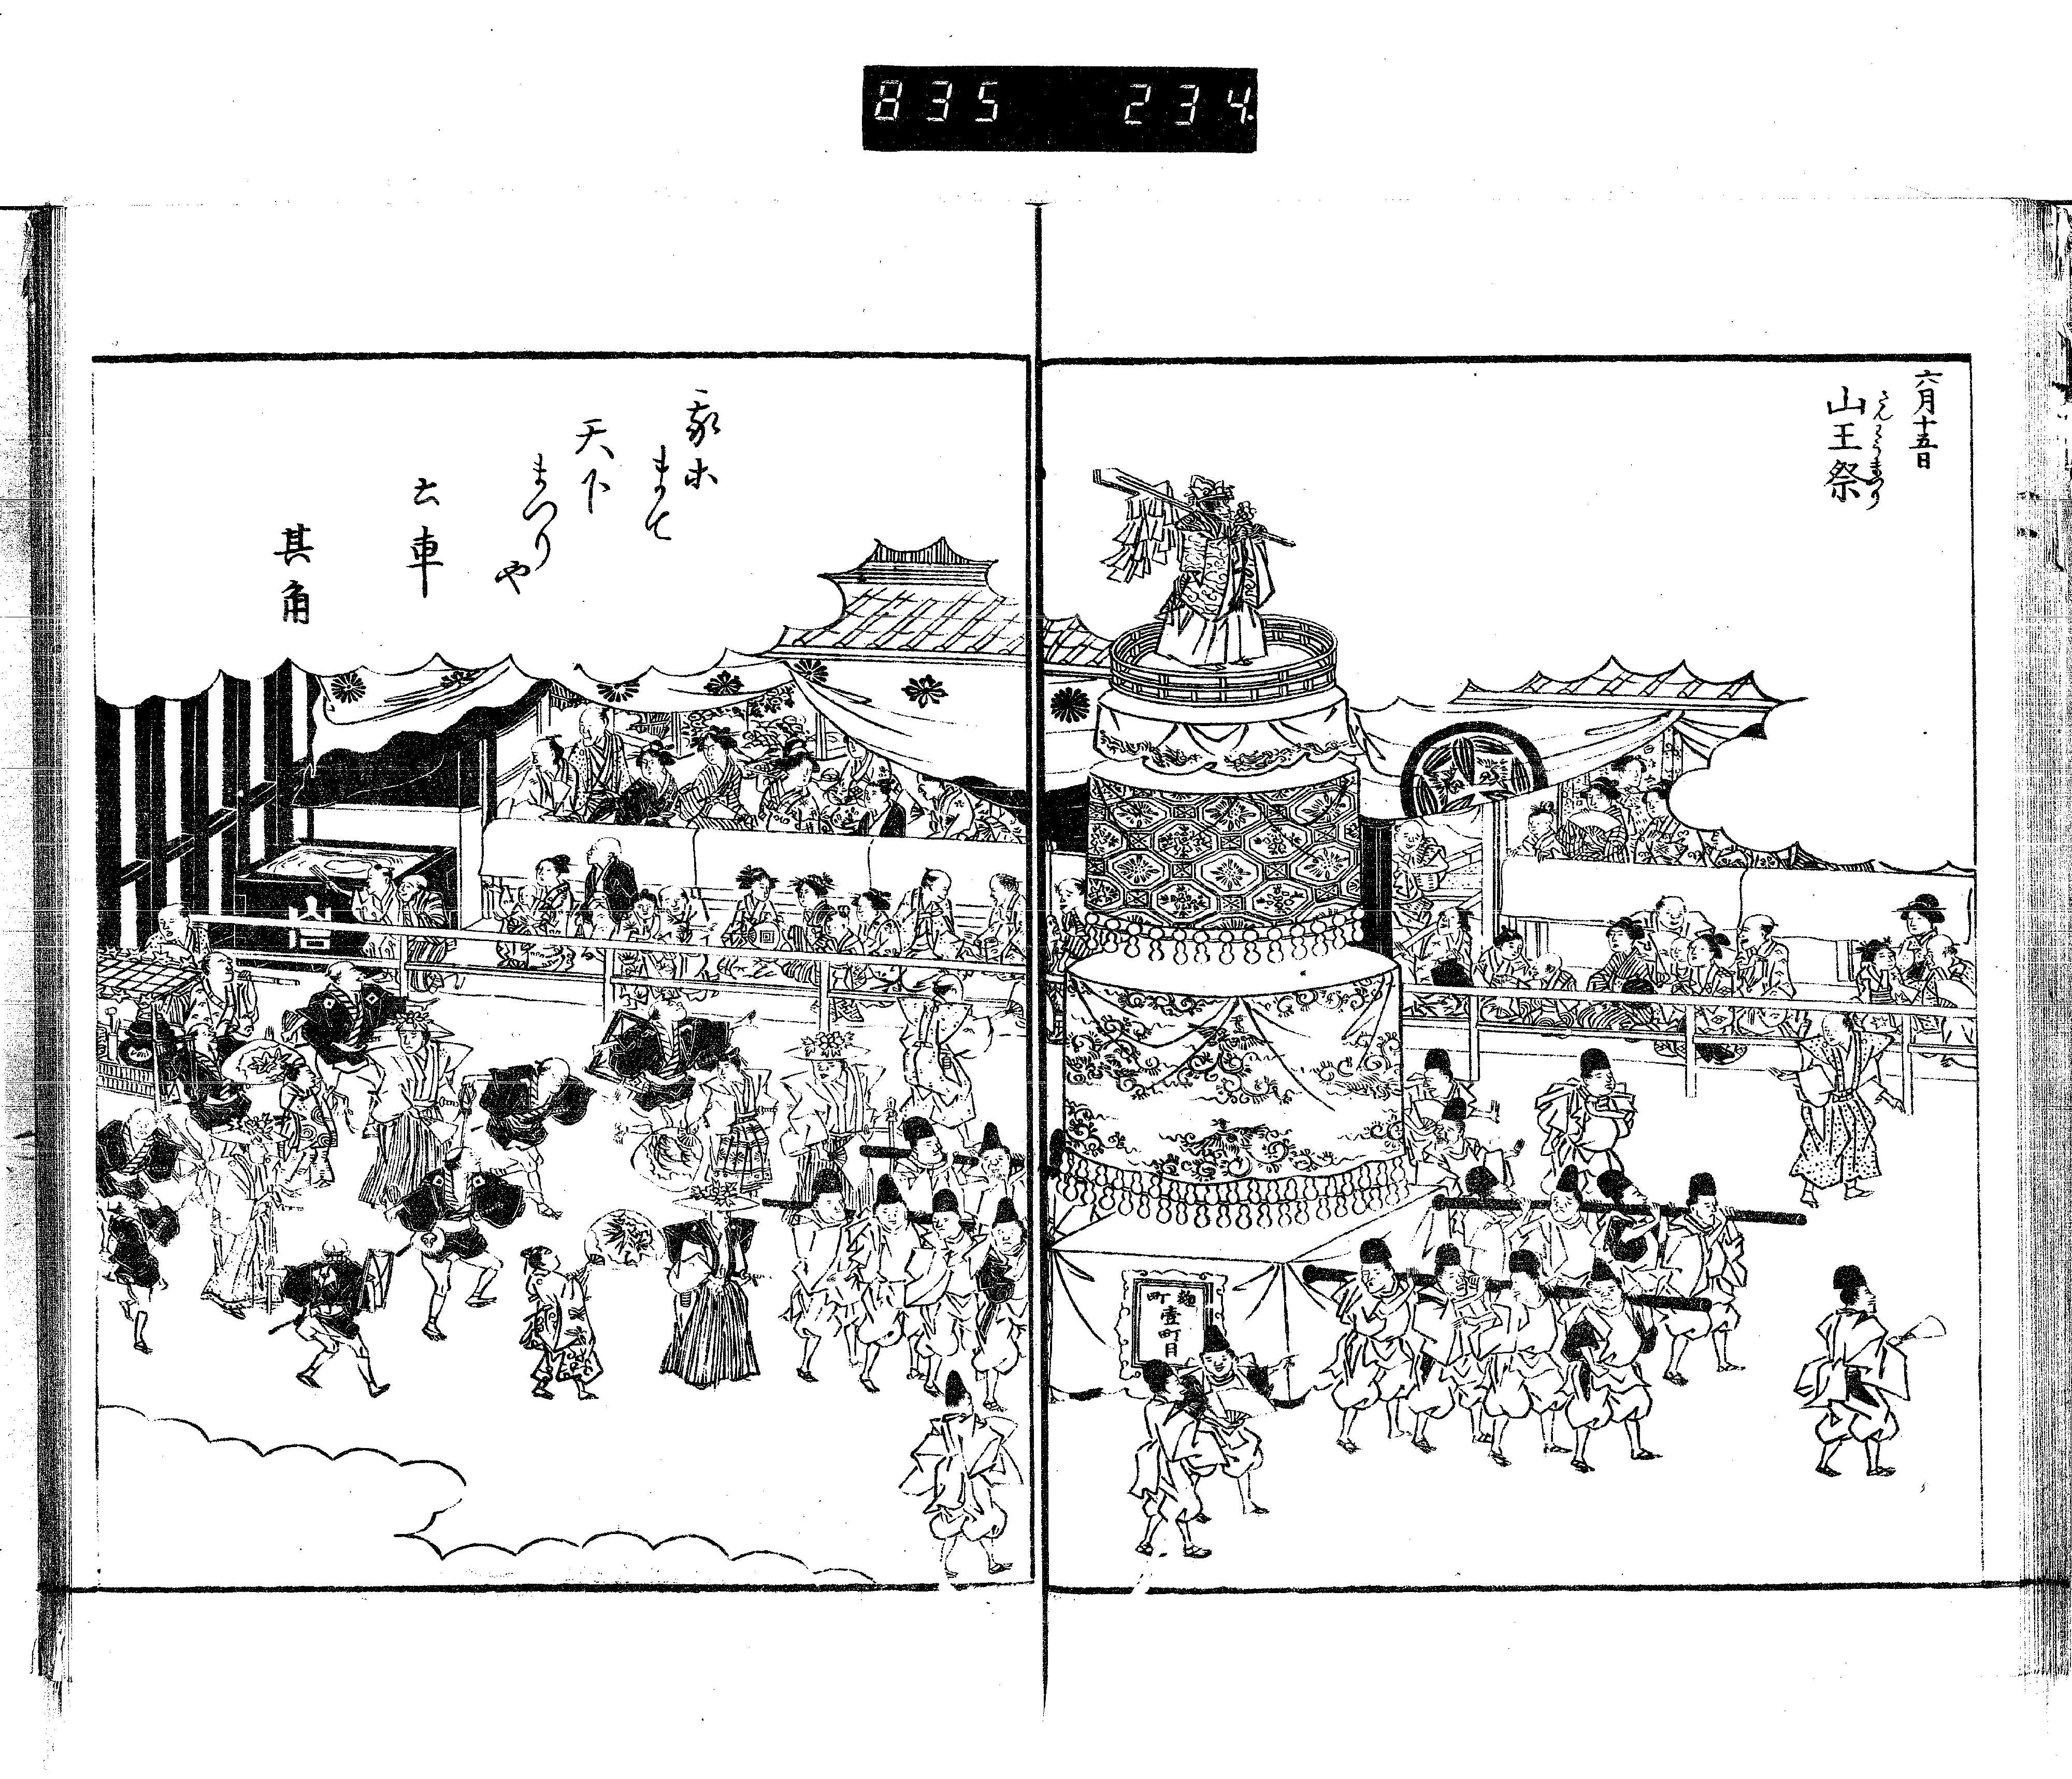 835 234.
六月十五日
さんわうまつり
山王祭
我等
まて
天下
まつりや
土車
其角
麹町
壹町目